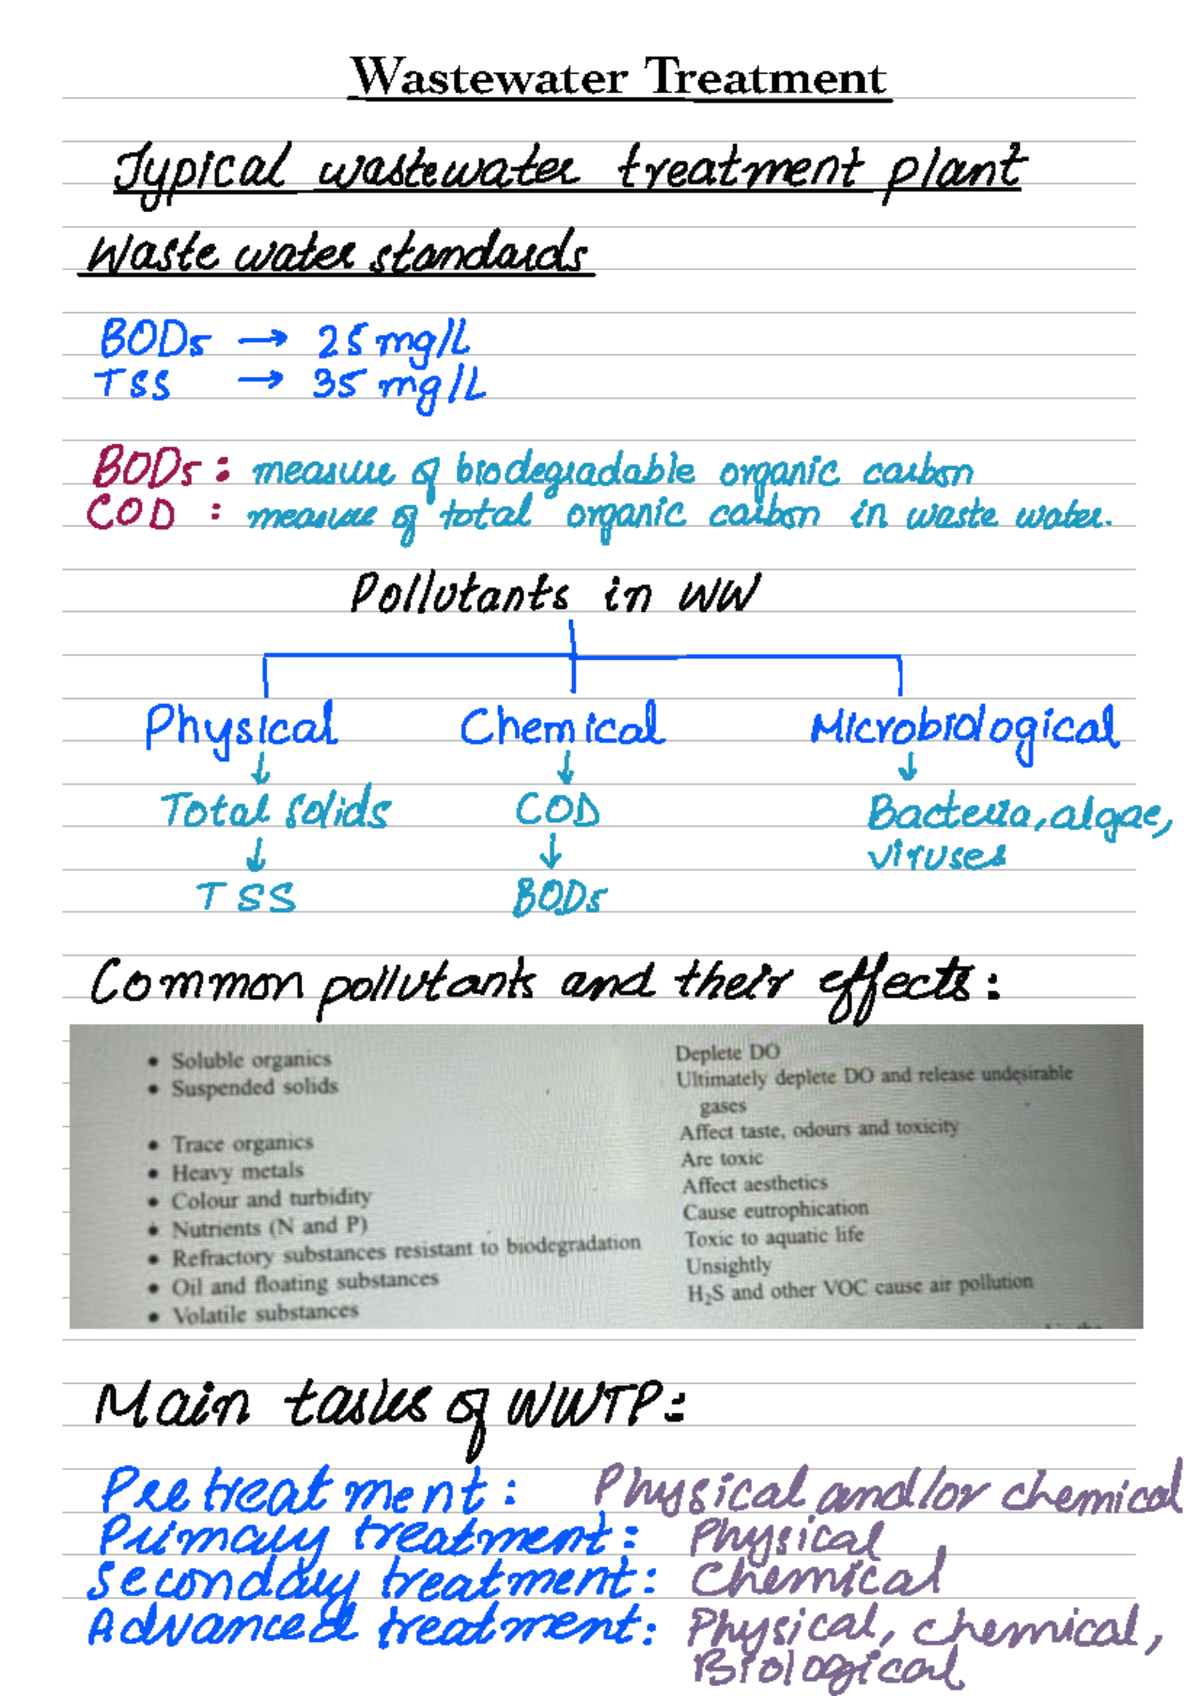 Wastewater Treatment
Typical wastewater treatment plant
Waste water standards
BOD5 → 25 mg/L
TSS → 35 mg/L
BOD5 : measure of biodegradable organic carbon
COD : measure of total organic carbon in waste water.
Pollutants in WW
Physical Chemical Microbiological
↓ ↓ ↓
Total solids COD Bacteria, algae,
viruses
↓ ↓
TSS BOD5
Common pollutants and their effects:
• Soluble organics Deplete DO
• Suspended solids Ultimately deplete DO and release undesirable
gases
• Trace organics Affect taste, odours and toxicity
• Heavy metals Are toxic
• Colour and turbidity Affect aesthetics
• Nutrients (N and P) Cause eutrophication
• Refractory substances resistant to biodegradation Toxic to aquatic life
• Oil and floating substances Unsightly
• Volatile substances H₂S and other VOC cause air pollution
Main tasks of WWTP:
Pretreatment: Physical and/or chemical
Primary treatment: Physical
Secondary treatment: Chemical
Advanced treatment: Physical, chemical,
Biological